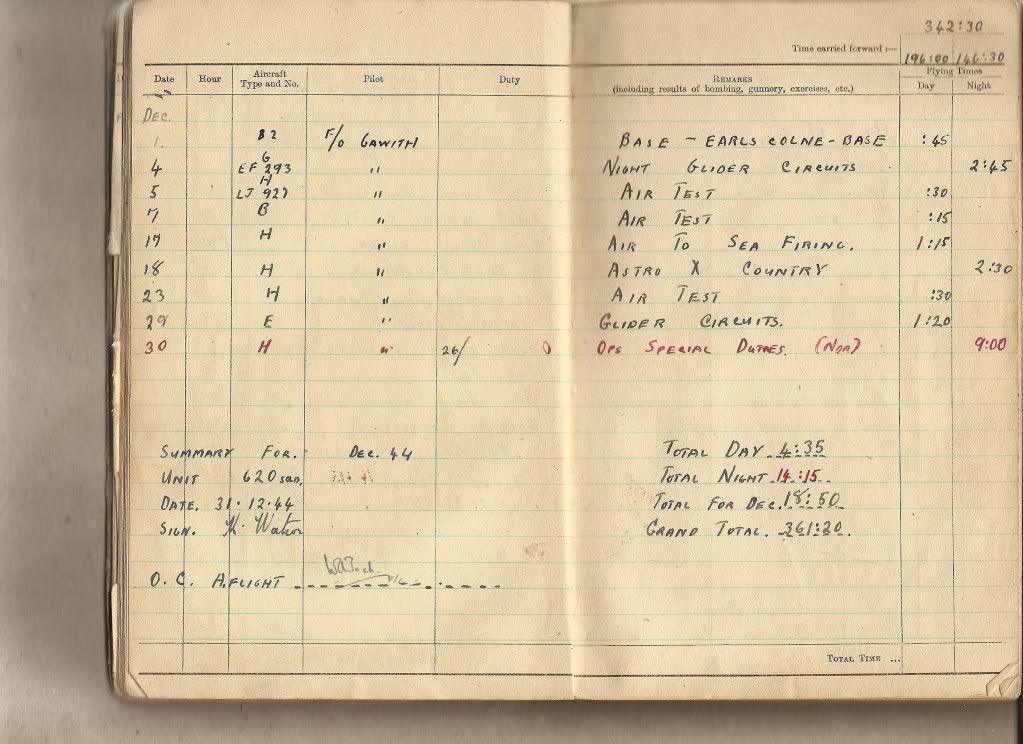 342:30
Time carried forward :— 196:00 146:30
Date Hour Aircraft Type and No. Pilot Duty Remarks (including results of bombing, gunnery, exercises, etc.) Flying Times Day Night
DEC.
1. B2 F/O GAWITH BASE - EARLS COLNE - BASE :45
4 G EF 293 " NIGHT GLIDER CIRCUITS 2:45
5 H LJ 927 " AIR TEST :30
7 B " AIR TEST :15
17 H " AIR TO SEA FIRING. 1:15
18 H " ASTRO X COUNTRY 2:30
23 H " AIR TEST :30
29 E " GLIDER CIRCUITS. 1:20
30 H " 26/ 0 OPS SPECIAL DUTIES. (NOR) 9:00
SUMMARY FOR. DEC. 44 TOTAL DAY 4:35
UNIT 620 SQD. TOTAL NIGHT 14:15
DATE. 31.12.44 TOTAL FOR DEC. 18:50
SIGN. K. Watson GRAND TOTAL. 361:20.
O.C. A.FLIGHT
TOTAL TIME ...